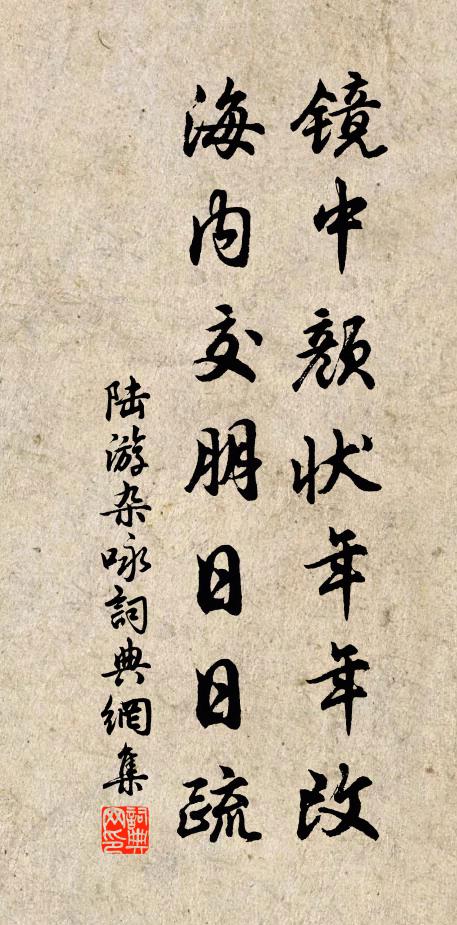 镜中颜状年年改
海内交朋日日疏
陆游杂咏詞典網集
詞典网印